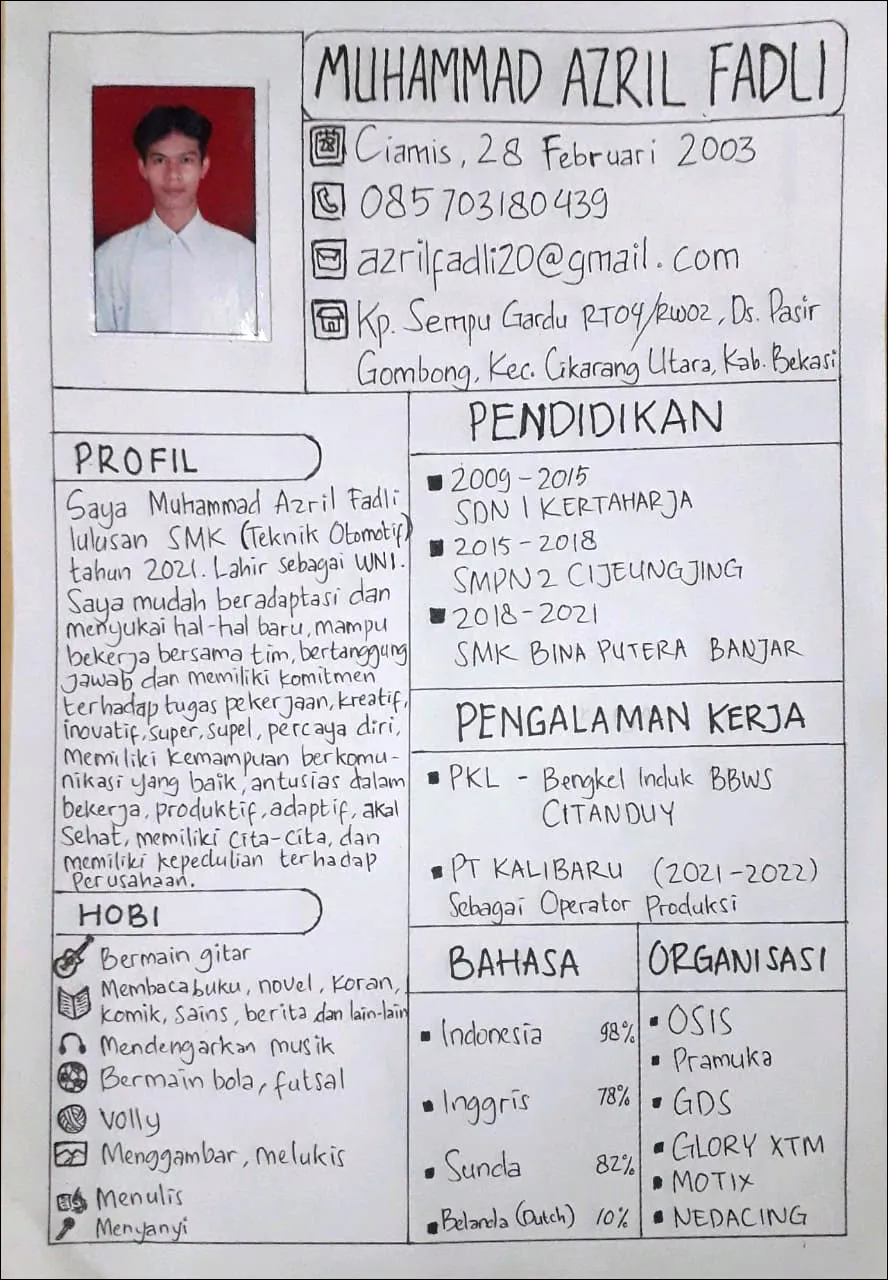 MUHAMMAD AZRIL FADLI
28
Ciamis, 28 Februari 2003
085703180439
azrilfadli20@gmail.com
Kp. Sempu Gardu RT04/RW02, Ds. Pasir
Gombong, Kec. Cikarang Utara, Kab. Bekasi
PROFIL
Saya Muhammad Azril Fadli
lulusan SMK (Teknik Otomotif)
tahun 2021. Lahir sebagai WNI.
Saya mudah beradaptasi dan
menyukai hal-hal baru, mampu
bekerja bersama tim, bertanggung
jawab dan memiliki komitmen
terhadap tugas pekerjaan, kreatif,
inovatif, super, supel, percaya diri,
Memiliki kemampuan berkomu-
nikasi yang baik, antusias dalam
bekerja, produktif, adaptif, akal
Sehat, memiliki cita-cita, dan
memiliki kepedulian terhadap
Perusahaan.
HOBI
Bermain gitar
Membaca buku, novel, koran,
komik, sains, berita dan lain-lain
Mendengarkan musik
Bermain bola, futsal
Volly
Menggambar, melukis
Menulis
Menyanyi
PENDIDIKAN
2009 - 2015
SDN 1 KERTAHARJA
2015 - 2018
SMPN 2 CIJEUNGJING
2018 - 2021
SMK BINA PUTERA BANJAR
PENGALAMAN KERJA
PKL - Bengkel Induk BBWS
CITANDUY
PT KALIBARU (2021-2022)
Sebagai Operator Produksi
BAHASA
Indonesia 98%
Inggris 78%
Sunda 82%
Belanda (Dutch) 10%
ORGANISASI
OSIS
Pramuka
GDS
GLORY XTM
MOTIX
NEDACING